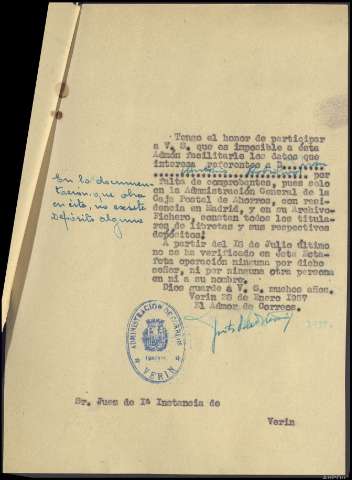 Tengo el honor de participar
a V. S. que es imposible a esta
Admón facilitarle los datos que
interesa referentes a D.
por
falta de comprobantes, pues solo
en la Administración General de la
Caja Postal de Ahorros, con resi-
dencia en Madrid, y en su Archivo-
Fichero, constan todos los titula-
res de libretas y sus respectivos
depósitos.
A partir del 18 de Julio último
no se ha verificado en ésta Esta-
feta operación ninguna por dicho
señor, ni por ninguna otra persona
en ni a su nombre.
Dios guarde a V. S. muchos años.
Verin 28 de Enero 1937
El Admor de Correos.
En la documen-
tación que obra
en ésta, no existe
depósito alguno
ADMINISTRACION DE CORREOS
VERIN
Sr. Juez de Iª Instancia de
Verin